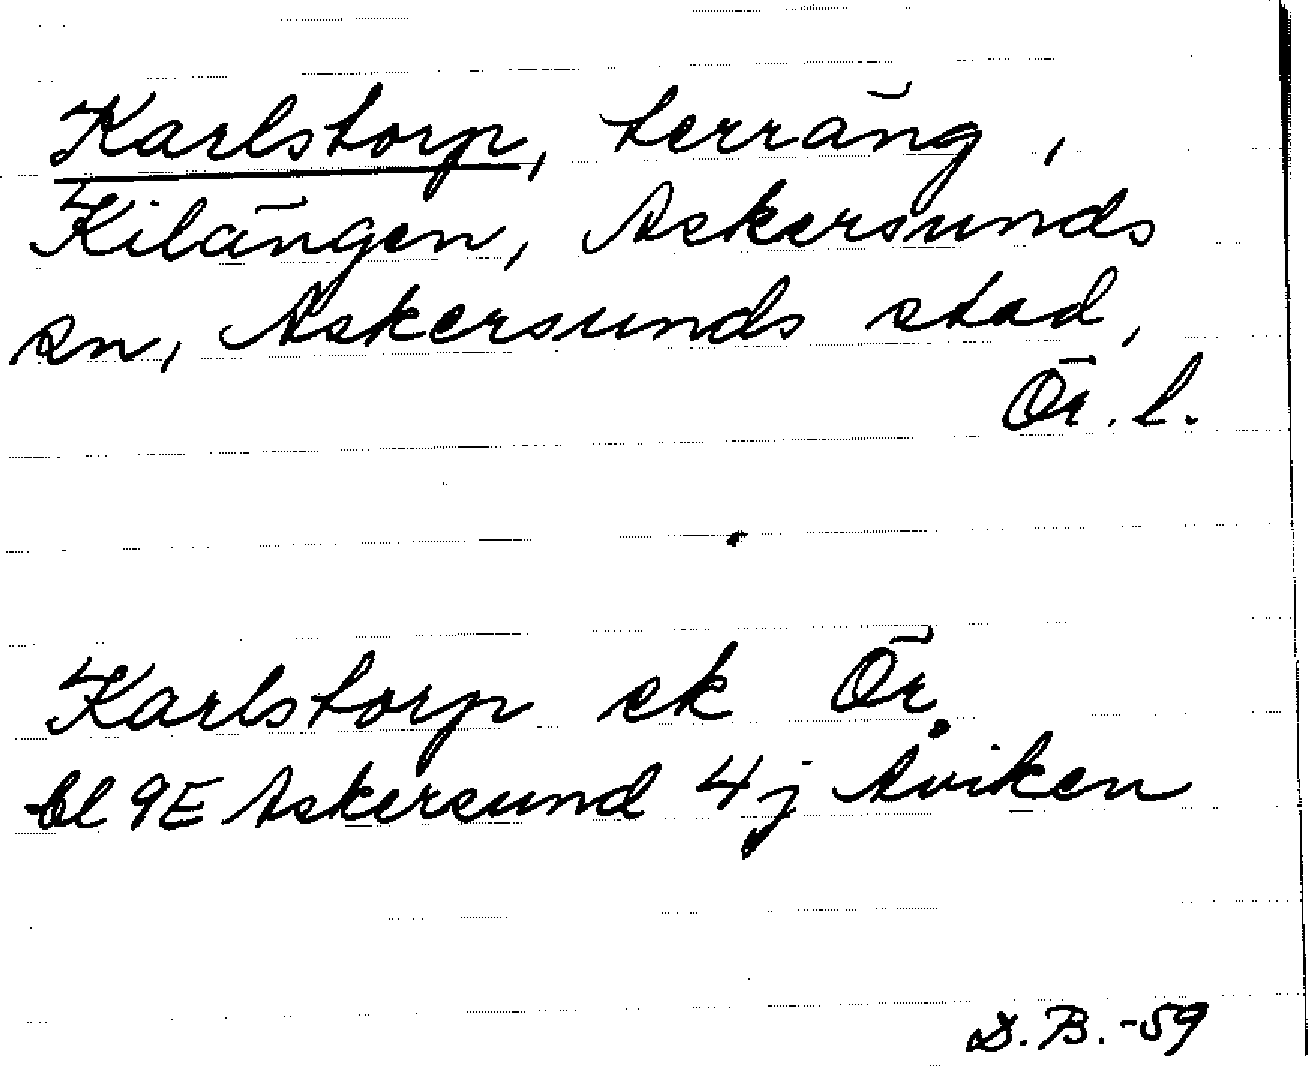 Karlstorp, terräng,
Kilängen, Askersunds
sn, Askersunds stad,
Ör. l.
Karlstorp ek Ör
bl 9E Askersund 4 j Åviken
D.B. -59